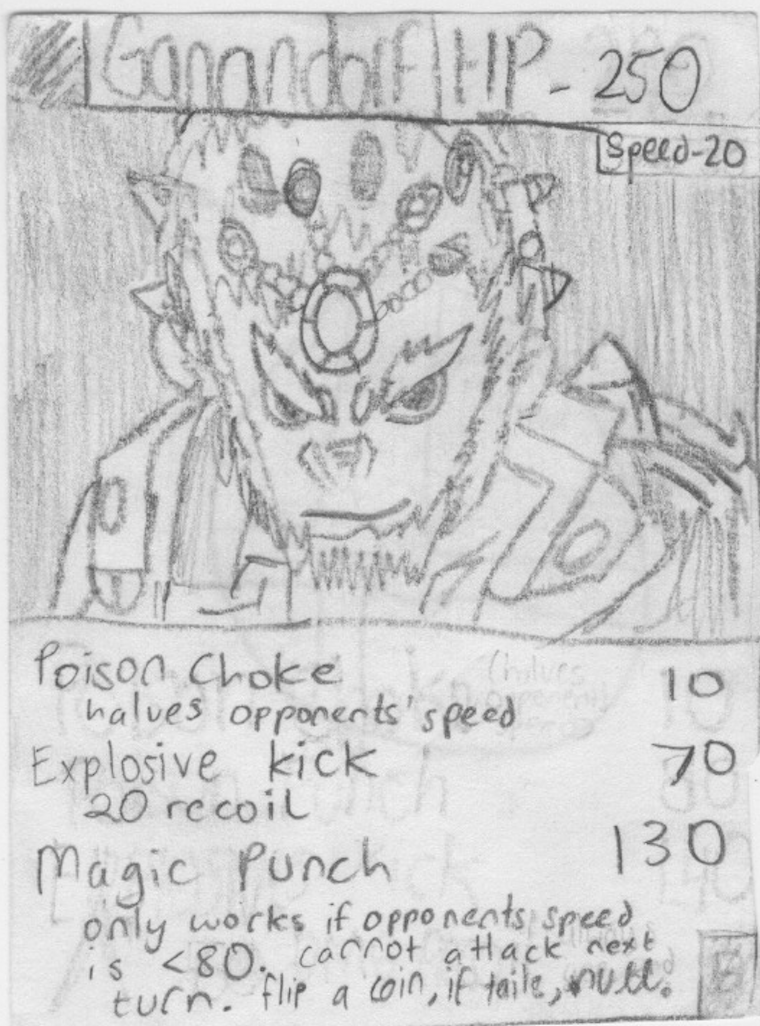 Ganandorf HP - 250
Speed-20
Poison Choke 10
halves opponents' speed
Explosive kick 70
20 recoil
Magic Punch 130
only works if opponents speed
is <80. cannot attack next
turn. flip a coin, if tails, null.